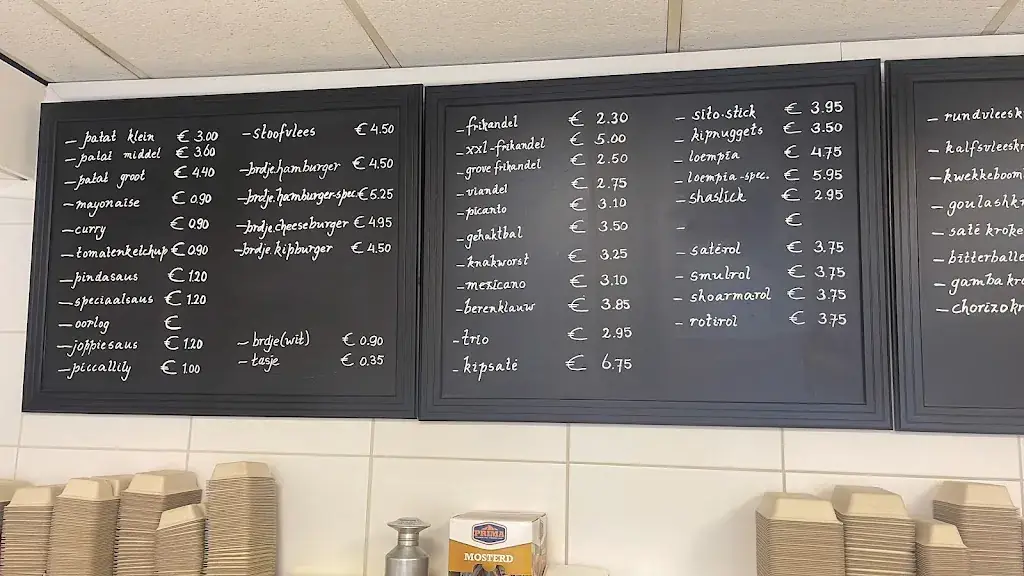 - patat klein € 3.00
- patat middel € 3.60
- patat groot € 4.40
- mayonaise € 0.90
- curry € 0.90
- tomatenketchup € 0.90
- pindasaus € 1.20
- speciaalsaus € 1.20
- oorlog €
- joppiesaus € 1.20
- piccallily € 1.00
- stoofvlees € 4.50
- brdje.hamburger € 4.50
- brdje.hamburger-spec € 5.25
- brdje.cheeseburger € 4.95
- brdje.kipburger € 4.50
- brdje(wit) € 0.90
- tasje € 0.35
- frikandel € 2.30
- xxl-frikandel € 5.00
- grove frikandel € 2.50
- viandel € 2.75
- picanto € 3.10
- gehaktbal € 3.50
- knakworst € 3.25
- mexicano € 3.10
- berenklauw € 3.85
- trio € 2.95
- kipsaté € 6.75
- sito.stick € 3.95
- kipnuggets € 3.50
- loempia € 4.75
- loempia-spec. € 5.95
- shaslick € 2.95
- €
- satérol € 3.75
- smulrol € 3.75
- shoarmarol € 3.75
- rotirol € 3.75
- rundvleesk
- kalfsvleeskr
- kwekkeboom
- goulashk
- saté kroke
- bitterballe
- gamba kro
- chorizo kr
PRIMA
MOSTERD